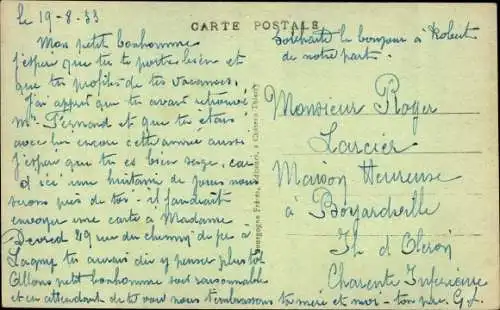 le 19-8-33
CARTE POSTALE
Mon petit bonhomme
j'espère que tu te portes bien et
que tu profites de tes vacances.
J'ai appris que tu avais retrouvé
Mr Fernand et que tu étais
avec lui encore cette année aussi
j'espère que tu es bien sage, car
d'ici une huitaine de jours nous
serons près de toi - il faudrait
envoyer une carte à Madame
Devred 29 rue du chemin de fer à
Lagny tu aurais dû y penser plus tôt
Allons petit bonhomme soit raisonnable
et en attendant de te voir nous t'embrassons ta mère et moi - ton père G L
souhaite le bonjour à Robert
de notre part.
Bourgogne Frères, éditeurs, à Château-Thierry
Monsieur Roger
Larcier
Maison Heureuse
à Boyardville
Ile d'Oléron
Charente Inférieure